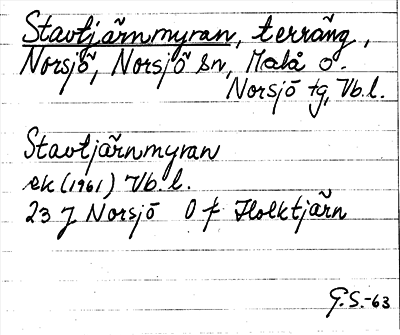 Stavtjärnmyran, terräng,
Norsjö, Norsjö sn, Malå o.
Norsjö tg, Vb.l.
Stavtjärnmyran
ek (1961) Vb. l.
23 J Norsjö O f Holktjärn
G.S.-63